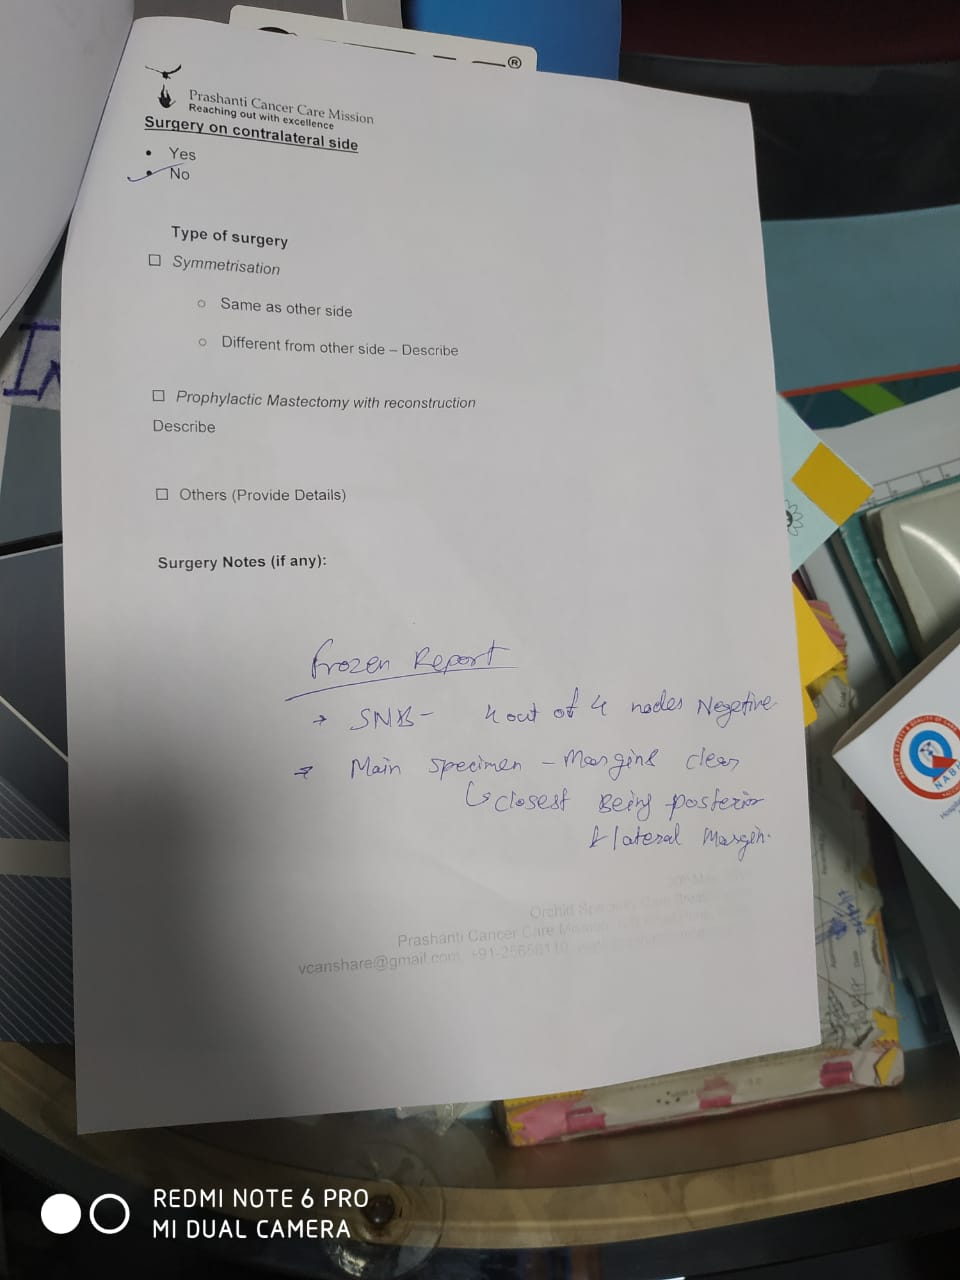 ®
Prashanti Cancer Care Mission
Reaching out with excellence
Surgery on contralateral side
• Yes
• No
Type of surgery
☐ Symmetrisation
○ Same as other side
○ Different from other side – Describe
☐ Prophylactic Mastectomy with reconstruction
Describe
☐ Others (Provide Details)
Surgery Notes (if any):
Frozen Report
→ SNB - 4 out of 4 nodes Negative
→ Main specimen - Margins clear
↳ closest Being posterior
& lateral Margin.
Orchid
Prashanti Cancer Care Mission
vcanshare@gmail.com
NABH
REDMI NOTE 6 PRO
MI DUAL CAMERA